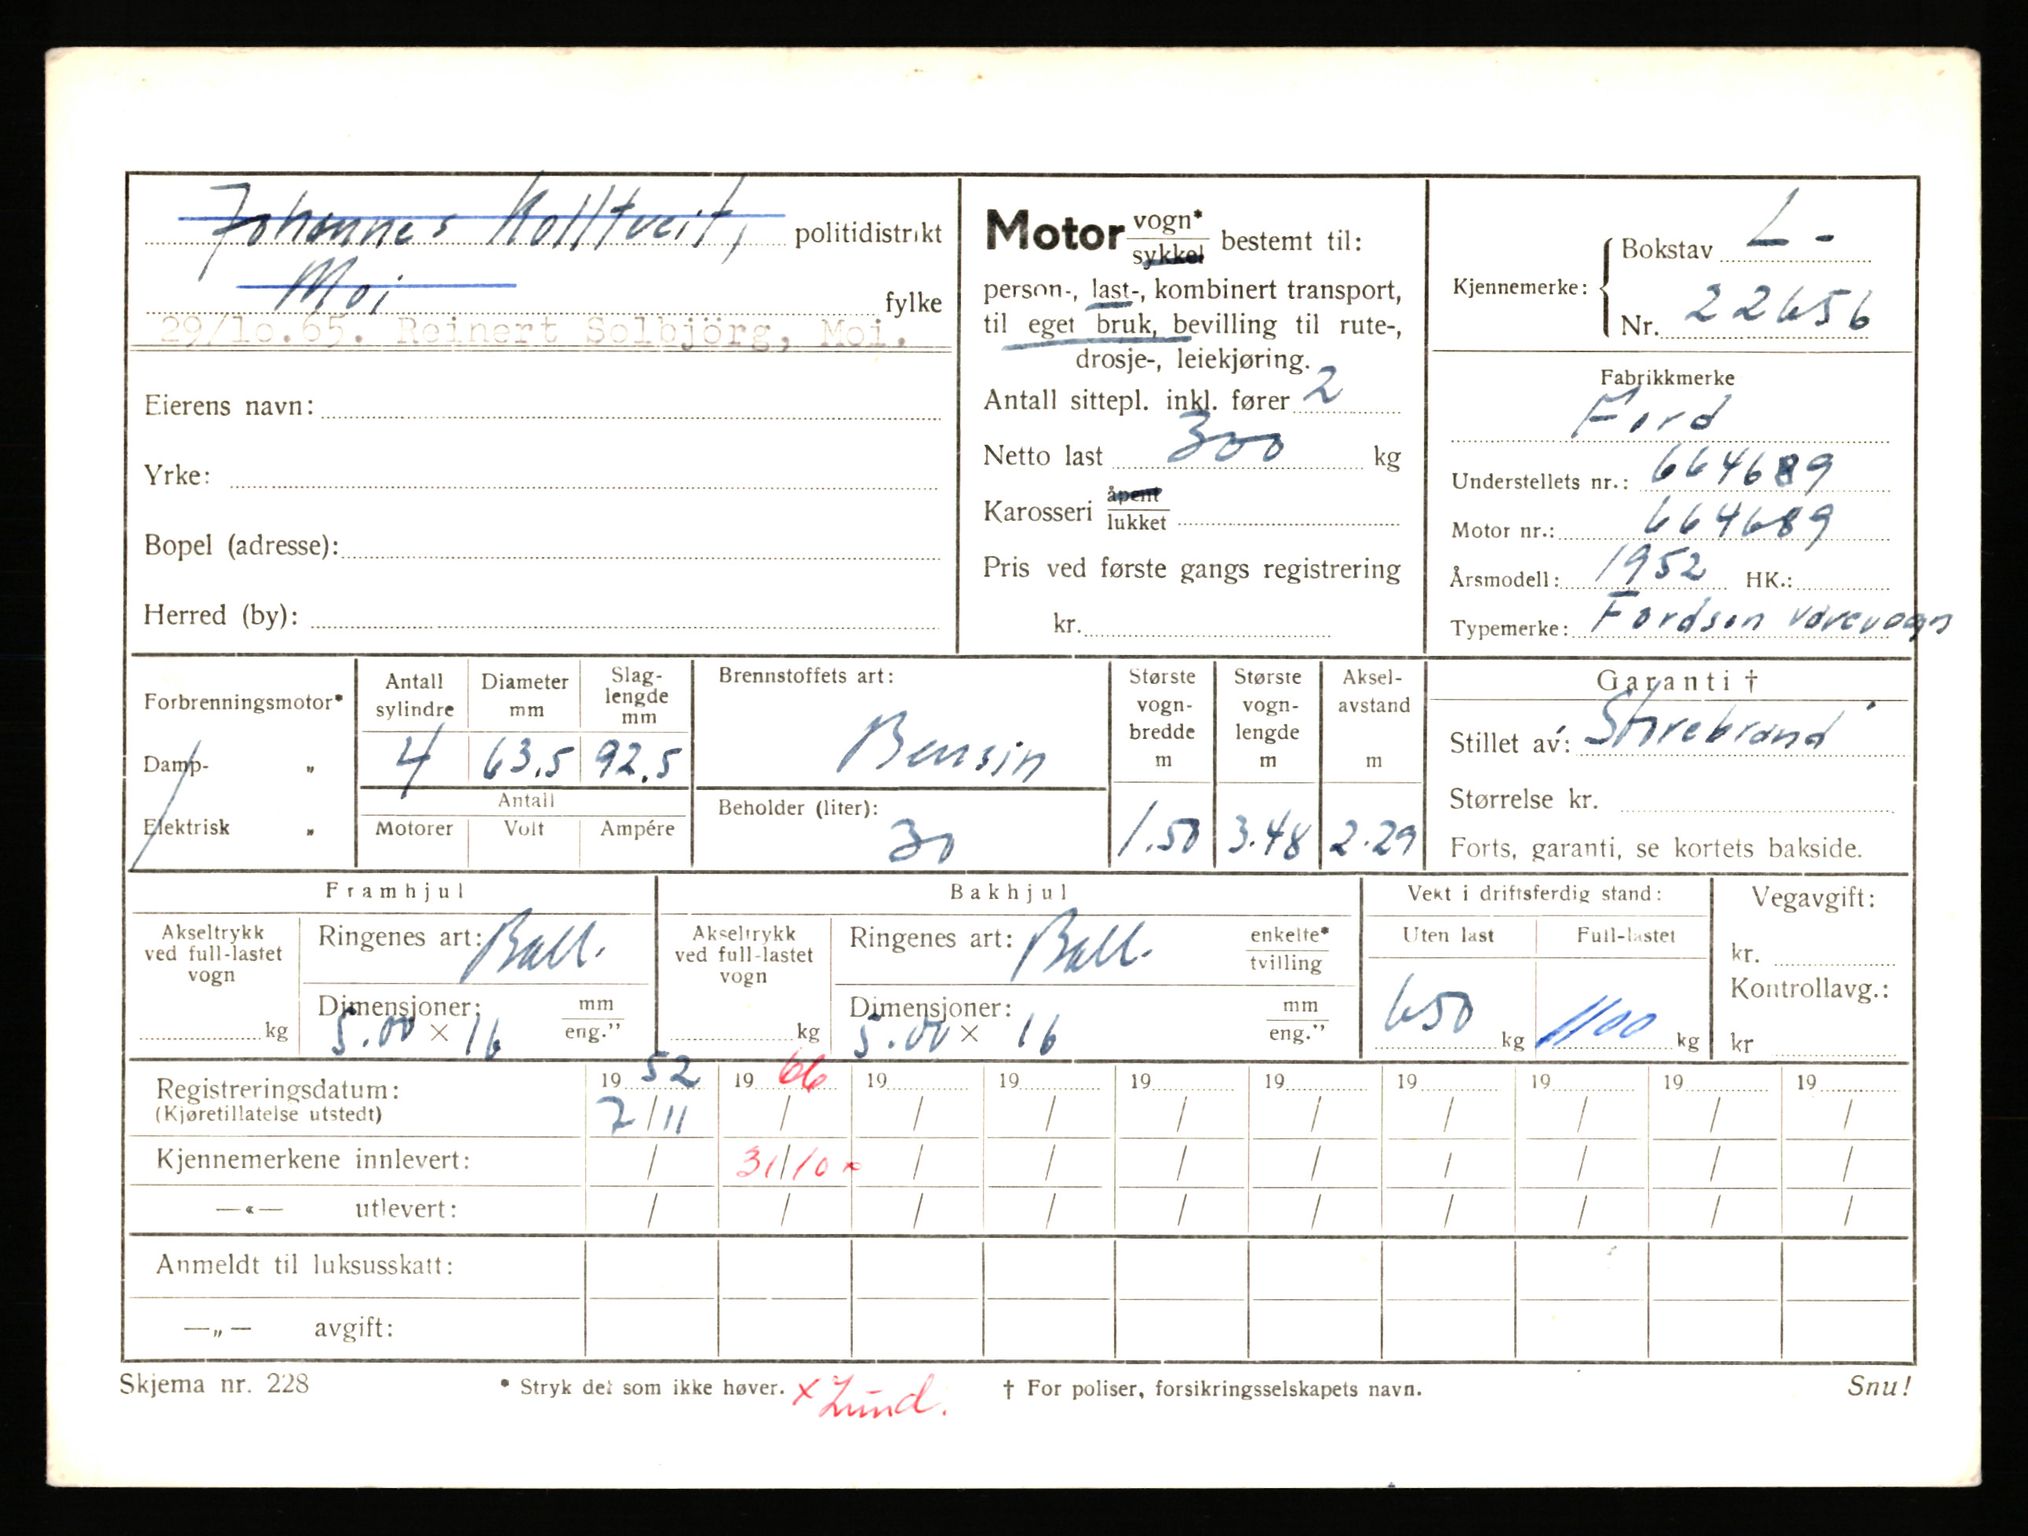 Johannes Kolltveit, politidistrikt
Moi fylke
29/10.65. Reinert Solbjörg, Moi.
Eierens navn:
Yrke:
Bopel (adresse):
Herred (by):
Motor vogn* sykkel bestemt til:
person-, last-, kombinert transport,
til eget bruk, bevilling til rute-,
drosje-, leiekjøring.
Antall sittepl. inkl. fører 2
Netto last 300 kg
Karosseri åpent lukket
Pris ved første gangs registrering
kr.
Kjennemerke: Bokstav L-
Nr. 22656
Fabrikkmerke
Ford
Understellets nr.: 664689
Motor nr.: 664689
Årsmodell: 1952 HK.:
Typemerke: Fordson varevogn
Forbrenningsmotor*
Damp- „
Elektrisk „
Antall sylindre Diameter mm Slag-lengde mm
4 63,5 92.5
Antall
Motorer Volt Ampére
Brennstoffets art:
Bensin
Beholder (liter):
30
Største vogn-bredde m Største vogn-lengde m Aksel-avstand m
1.50 3.48 2.29
Garanti †
Stillet av: Storebrand
Størrelse kr.
Forts, garanti, se kortets bakside.
Framhjul
Akseltrykk ved full-lastet vogn
kg
Ringenes art: Ball.
Dimensjoner: mm eng."
5.00 × 16
Bakhjul
Akseltrykk ved full-lastet vogn
kg
Ringenes art: Ball. enkelte* tvilling
Dimensjoner: mm eng."
5.00 × 16
Vekt i driftsferdig stand:
Uten last Full-lastet
650 kg 1100 kg
Vegavgift:
kr.
Kontrollavg.:
kr
Registreringsdatum: 19 52 19 66 19 19 19 19 19 19 19 19
(Kjøretillatelse utstedt) 7/11 / / / / / / / / /
Kjennemerkene innlevert: / 31/10 × / / / / / / / /
—«— utlevert: / / / / / / / / / /
Anmeldt til luksusskatt:
—„— avgift:
Skjema nr. 228 * Stryk det som ikke høver. × Lund. † For poliser, forsikringsselskapets navn. Snu!